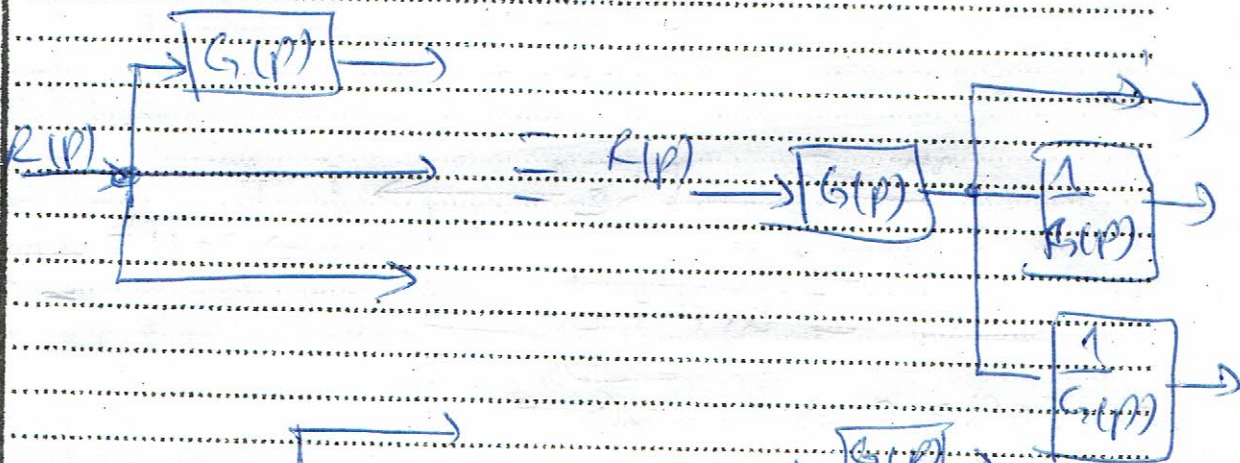 G(p)
R(p) = R(p) G(p) 1/G(p)
1/G(p)
G(p)